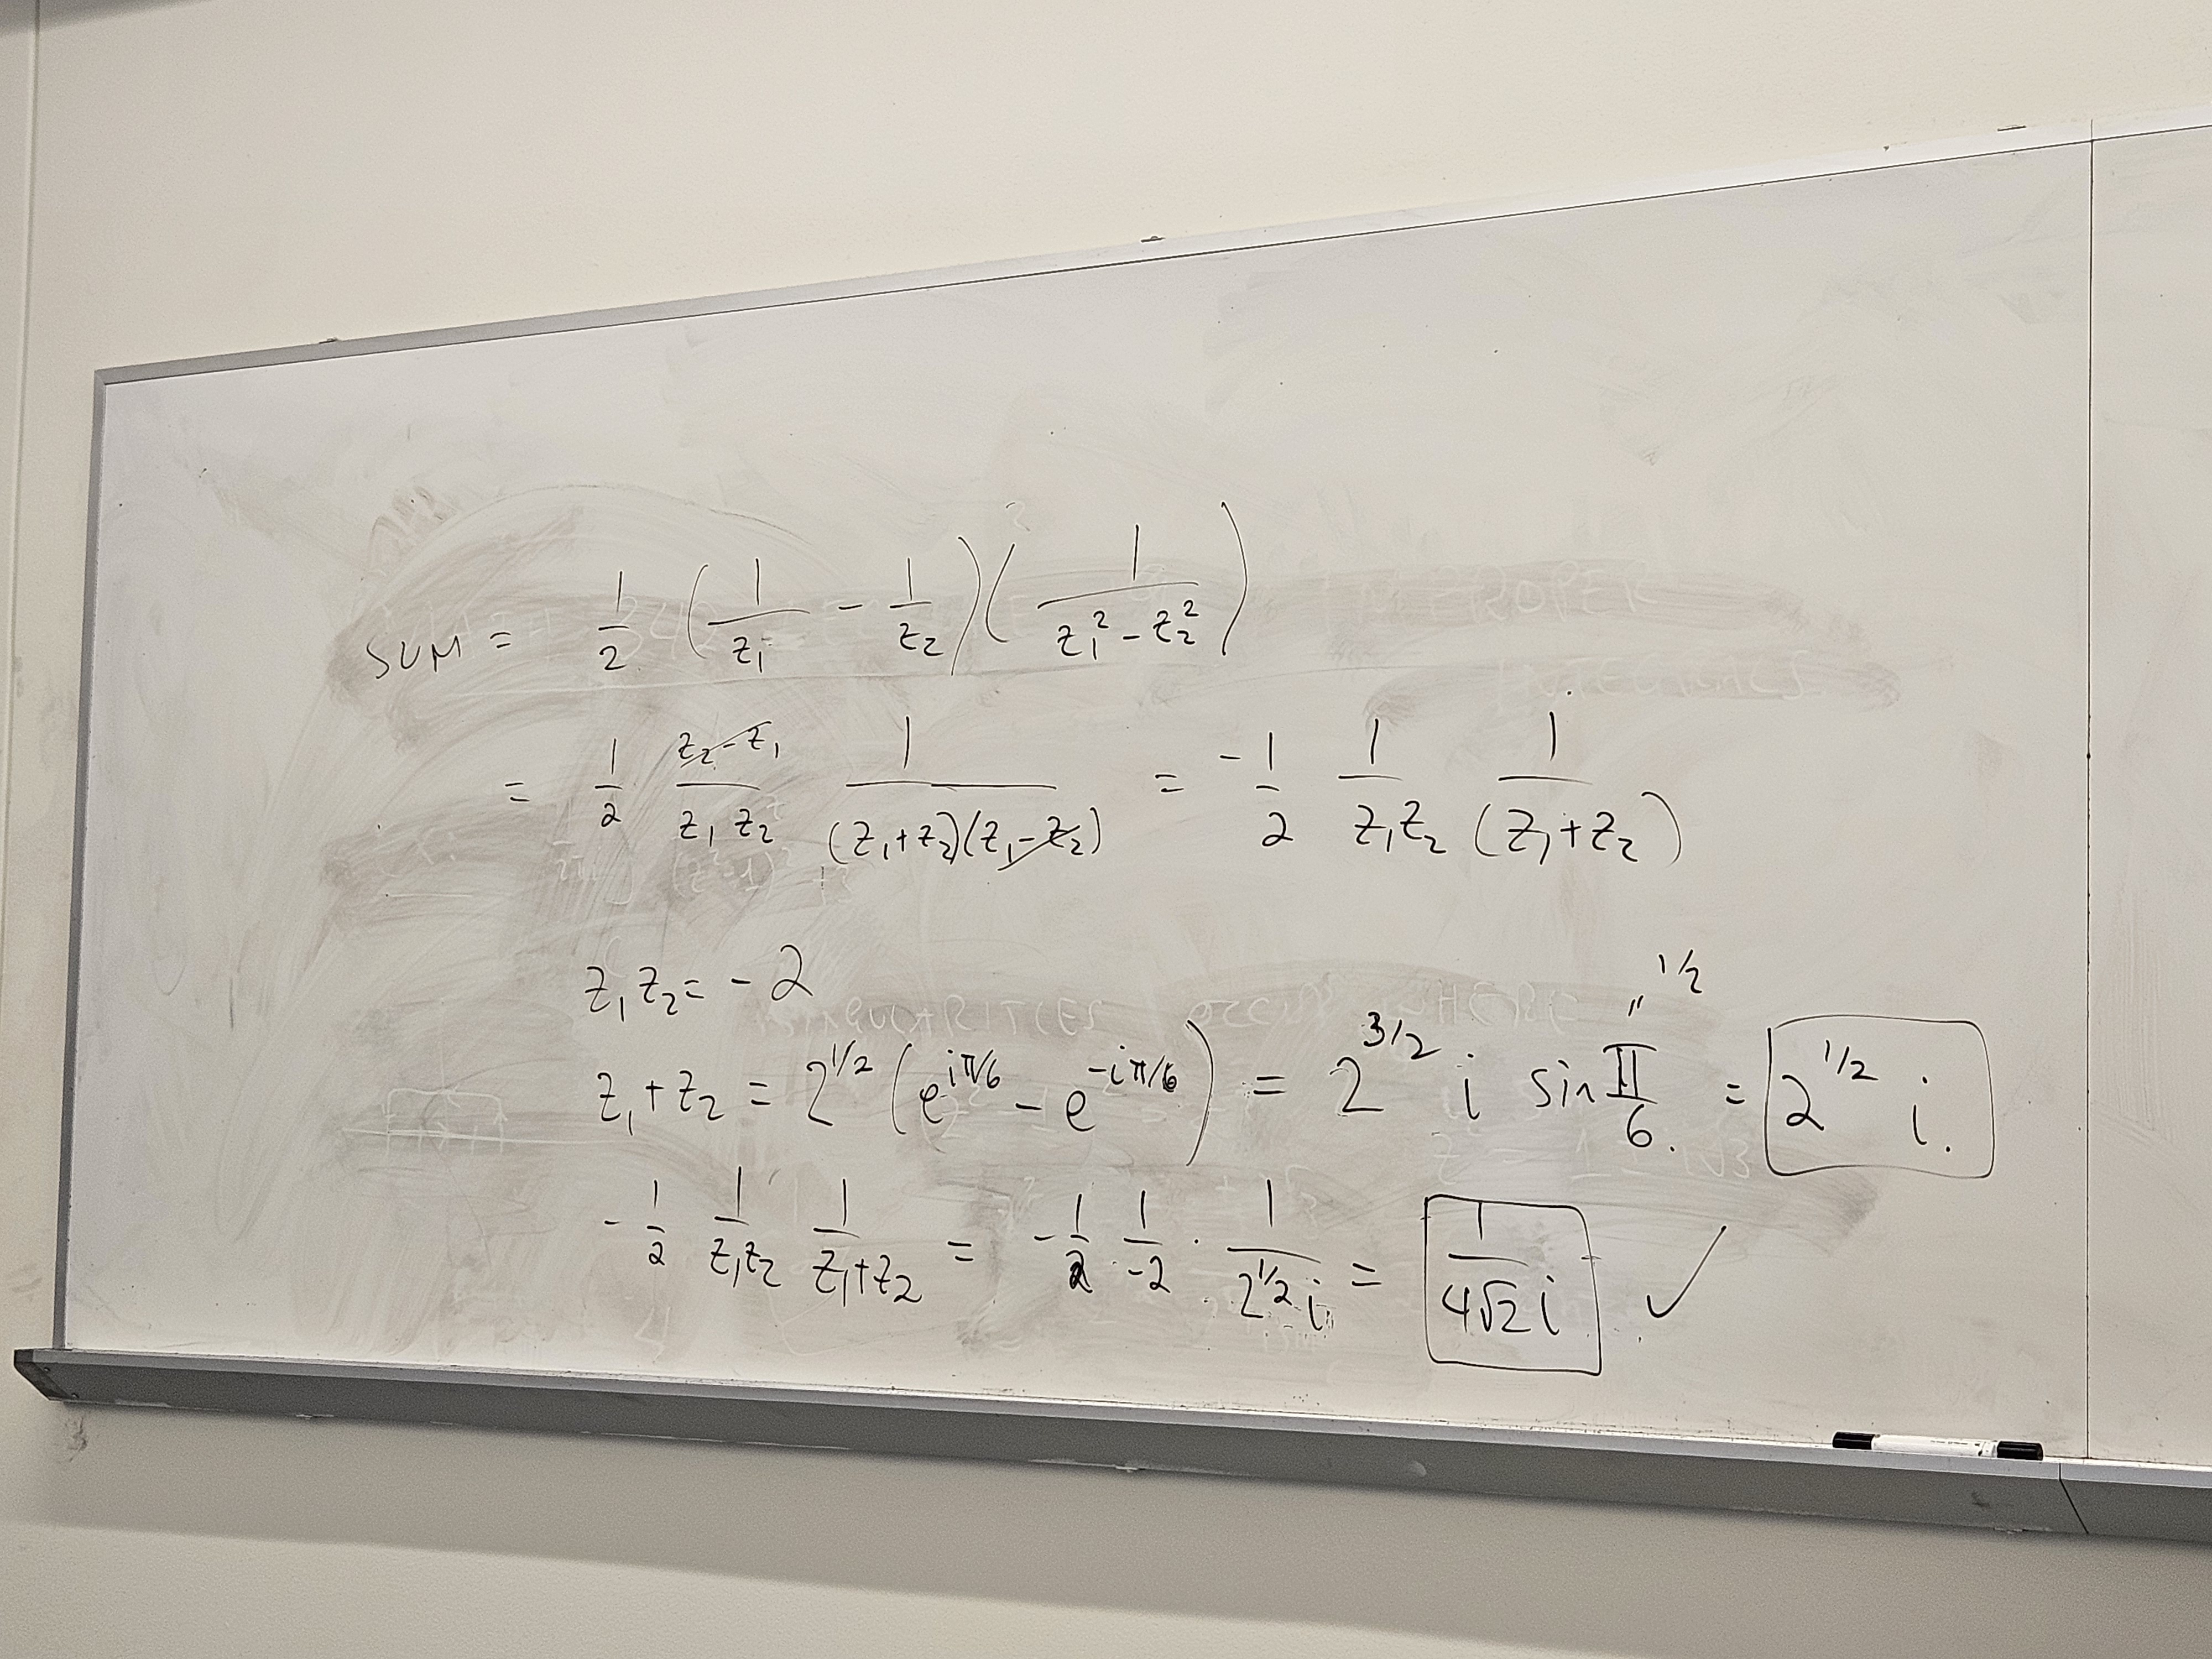 SUM = 1/2 (1/z₁ - 1/z₂)(1/(z₁² - z₂²))
= 1/2 (z₂ - z₁)/(z₁ z₂) 1/((z₁ + z₂)(z₁ - z₂)) = -1/2 1/(z₁z₂) 1/(z₁ + z₂)
z₁ z₂ = -2
z₁ + z₂ = 2^{1/2} (e^{iπ/6} - e^{-iπ/6}) = 2^{3/2} i sin π/6 = 2^{1/2} i.
" 1/2
-1/2 1/(z₁z₂) 1/(z₁+z₂) = -1/2 1/-2 · 1/(2^{1/2} i) = 1/(4√2 i) ✓